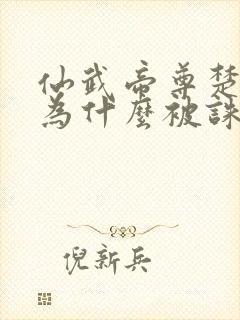 仙武帝尊楚
為什麼被誅
倪新兵